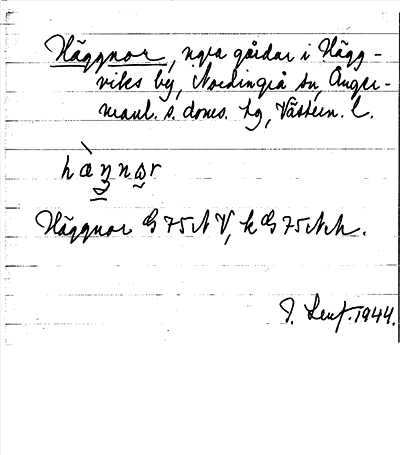 Häggnor, nya gårdar i Hägg-
viks by, Nordingrå sn, Ånger-
manl. s. doms. tg, Västern. l.
hàŋnar
Häggnor G 75 N V, k G 75 N M.
1944.